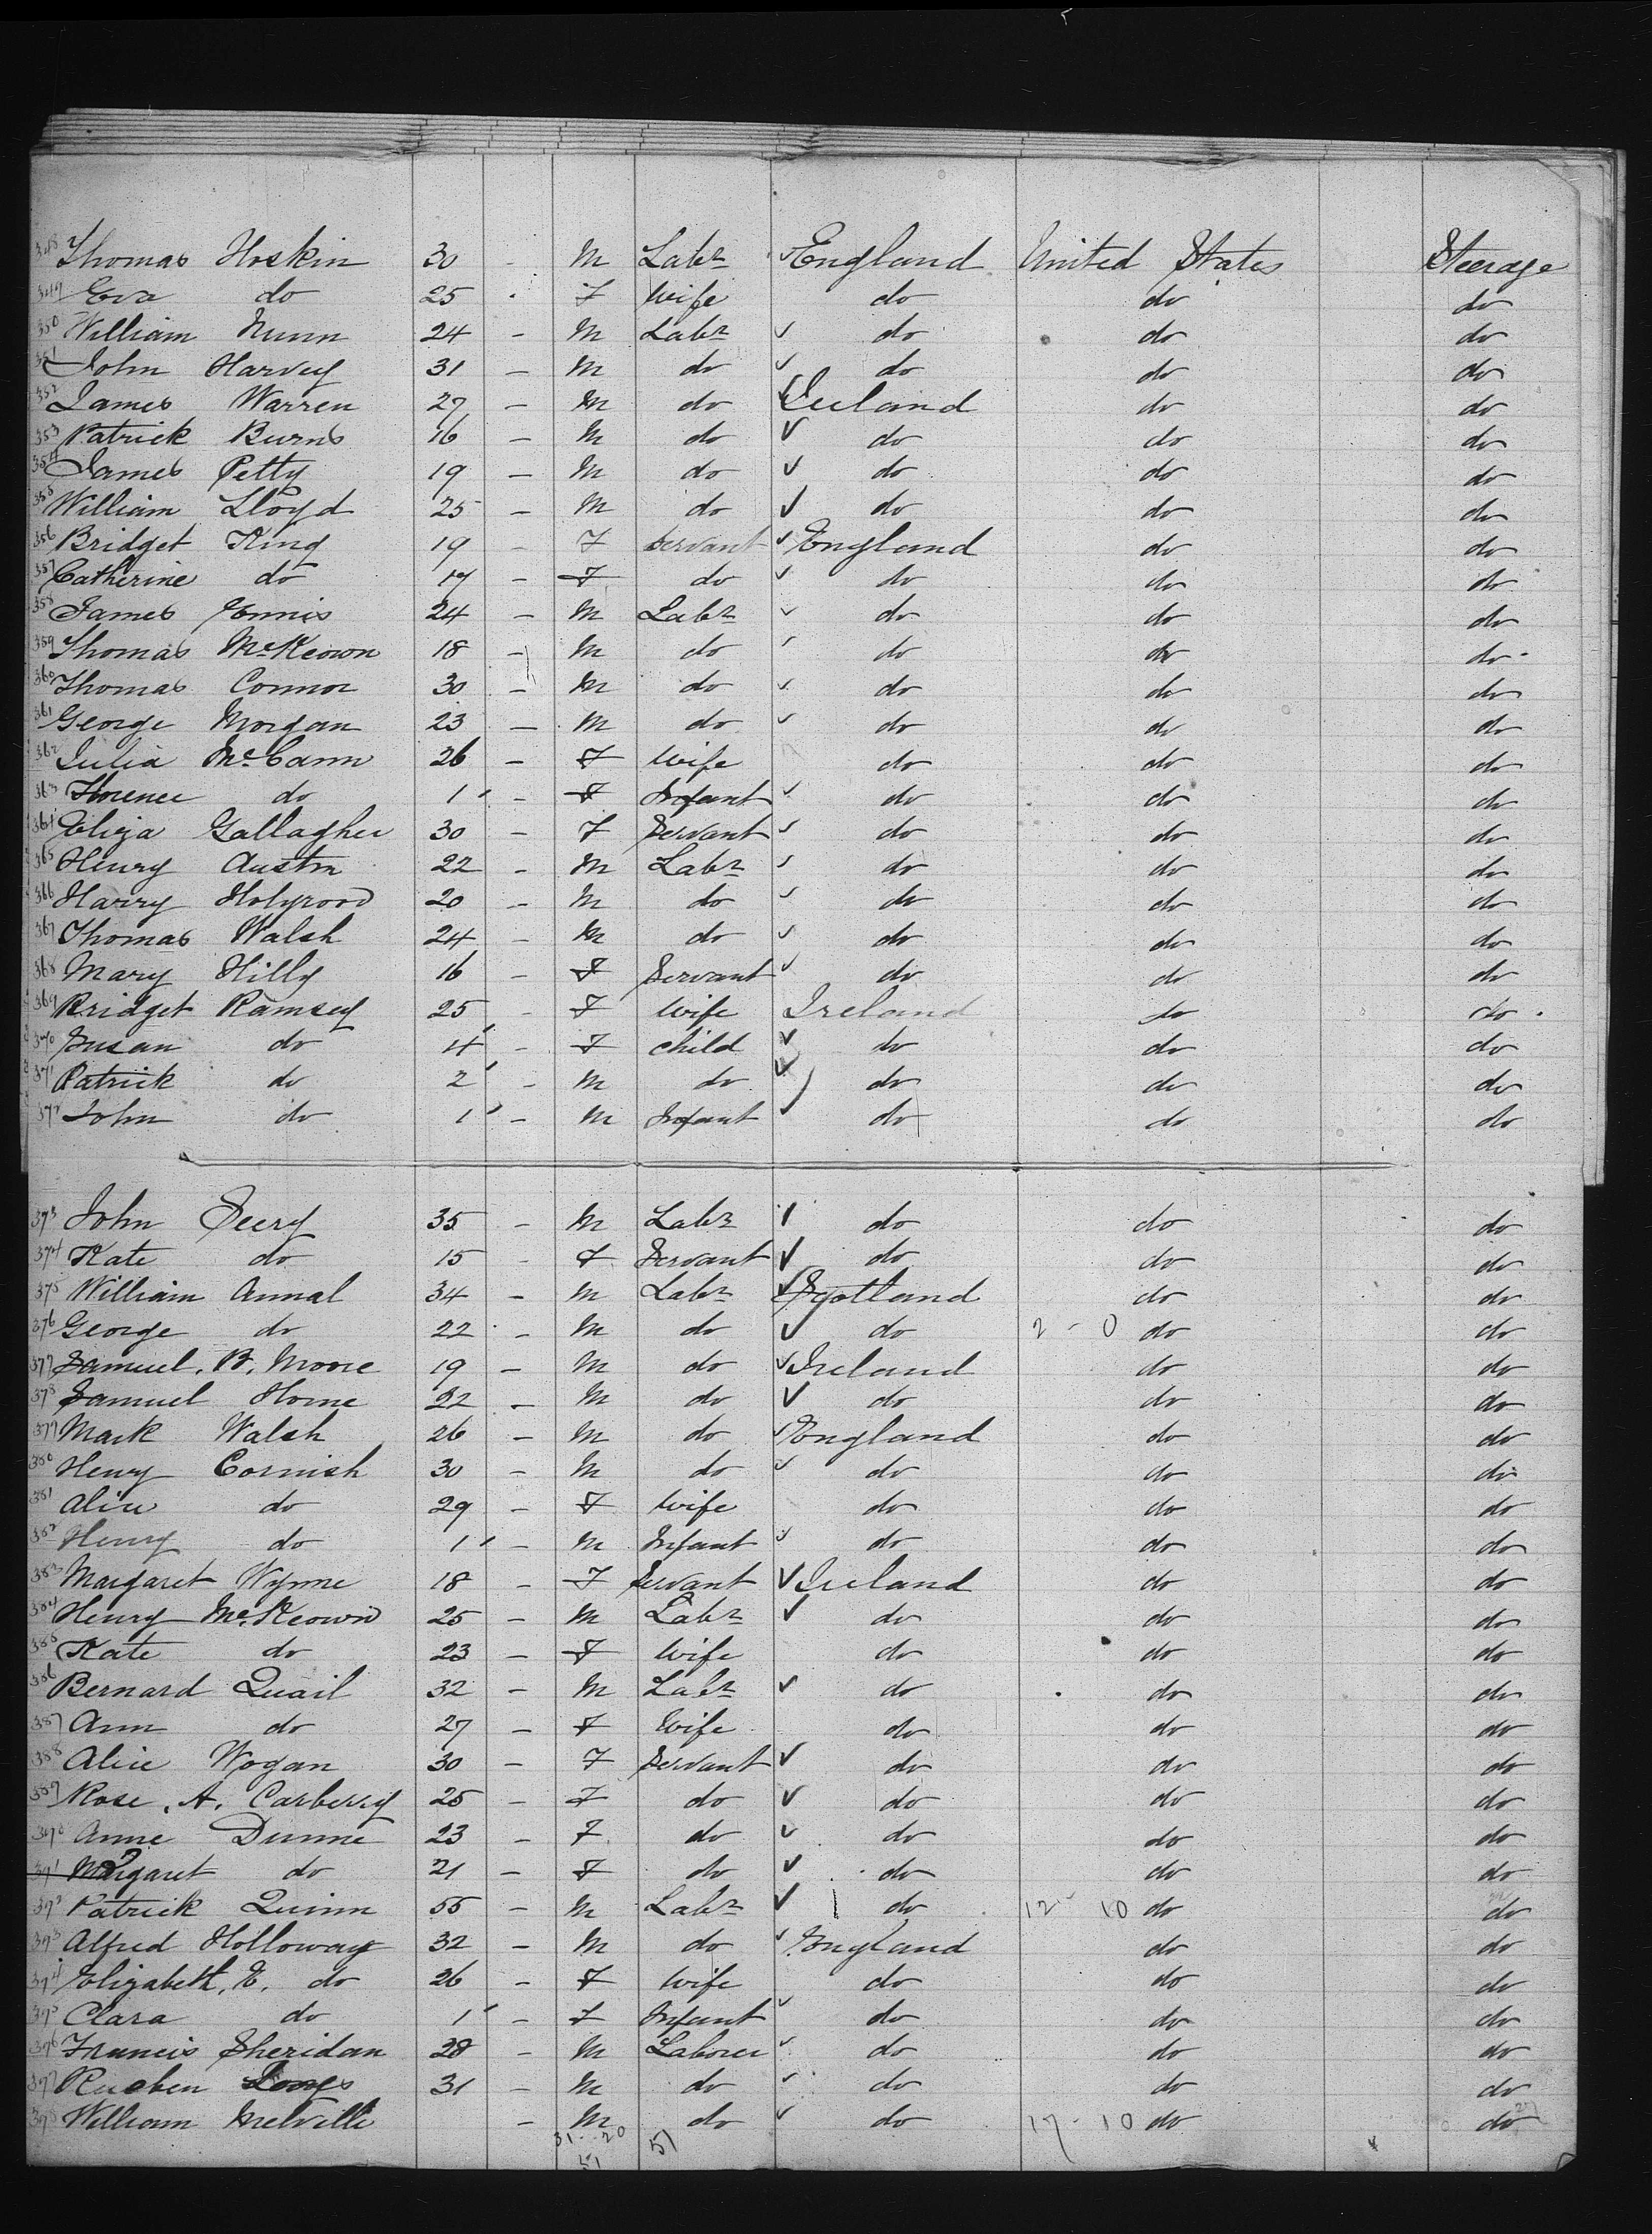 348 Thomas Hoskin 30 - M Labr England United States Steerage
349 Eva do 25 - F Wife do do do
350 William Nunn 24 - M Labr do do do
351 John Harvey 31 - M do do do do
352 James Warren 27 - M do Ireland do do
353 Patrick Burns 16 - M do do do do
354 James Petty 19 - M do do do do
355 William Lloyd 25 - M do do do do
356 Bridget King 19 - F Servant England do do
357 Catherine do 17 - F do do do do
358 James Ennis 24 - M Labr do do do
359 Thomas McKeown 18 - M do do do do
360 Thomas Connor 30 - M do do do do
361 George Morgan 23 - M do do do do
362 Julia McCann 26 - F Wife do do do
363 Florence do 1 - F Infant do do do
364 Eliza Gallagher 30 - F Servant do do do
365 Henry Austin 22 - M Labr do do do
366 Harry Holyrood 20 - M do do do do
367 Thomas Walsh 24 - M do do do do
368 Mary Hilly 16 - F Servant do do do
369 Bridget Ramsey 25 - F Wife Ireland do do
370 Susan do 4 - F Child do do do
371 Patrick do 2 - M do do do do
372 John do 1 - M Infant do do do
373 John Seery 35 - M Labr do do do
374 Kate do 15 - F Servant do do do
375 William Annal 34 - M Labr Scotland do do
376 George do 22 - M do do 2 - 0 do do
377 Samuel. B. Moore 19 - M do Ireland do do
378 Samuel Horne 22 - M do do do do
379 Mark Walsh 26 - M do England do do
380 Henry Cornish 30 - M do do do do
381 Alice do 29 - F Wife do do do
382 Henry do 1 - M Infant do do do
383 Margaret Wynne 18 - F Servant Ireland do do
384 Henry McKeown 25 - M Labr do do do
385 Kate do 23 - F Wife do do do
386 Bernard Quail 32 - M Labr do do do
387 Ann do 27 - F Wife do do do
388 Alice Wogan 30 - F Servant do do do
389 Rose. A. Carberry 25 - F do do do do
390 Anne Dunne 23 - F do do do do
391 Margaret do 21 - F do do do do
392 Patrick Quinn 55 - M Labr do 12 - 10 do do
393 Alfred Holloway 32 - M do England do do
394 Elizabeth. E. do 26 - F Wife do do do
395 Clara do 1 - F Infant do do do
396 Francis Sheridan 28 - M Laborer do do do
397 Rueben 31 - M do do do do
398 William Melville - M do do 17 - 10 do do
31 - 20 51
51